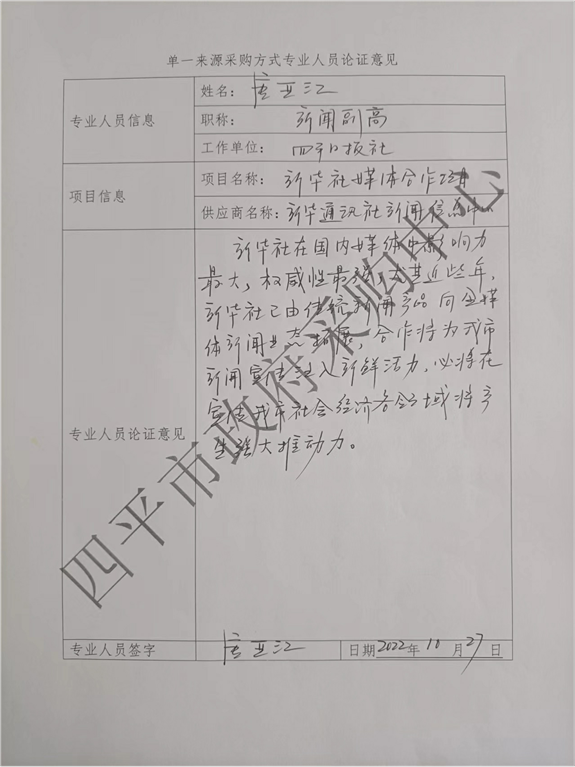 单一来源采购方式专业人员论证意见
专业人员信息
姓名: 亚江
职称: 新闻副高
工作单位: 四平日报社
项目信息
项目名称: 新华社媒体合作项目
供应商名称: 新华通讯社新闻信息中心
专业人员论证意见
新华社在国内媒体中影响力
最大,权威性最强,尤其近些年,
新华社已由传统新闻产品向全媒
体新闻业态拓展,合作将为我市
新闻宣传注入新鲜活力,必将在
宣传我市社会经济各领域将产
生强大推动力。
专业人员签字
亚江
日期2022年10月27日
四平市政府采购中心